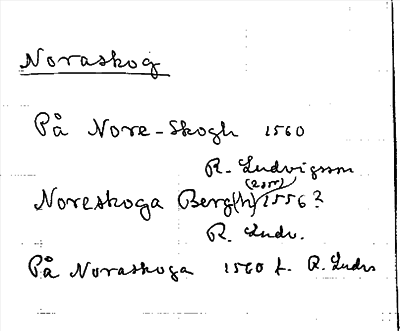 Noraskog
På Nore-Skogh 1560
R. Ludvigsson
Noreskoga Berg(h) 1556?
R. Ludv.
På Noraskoga 1560 t. R. Ludv